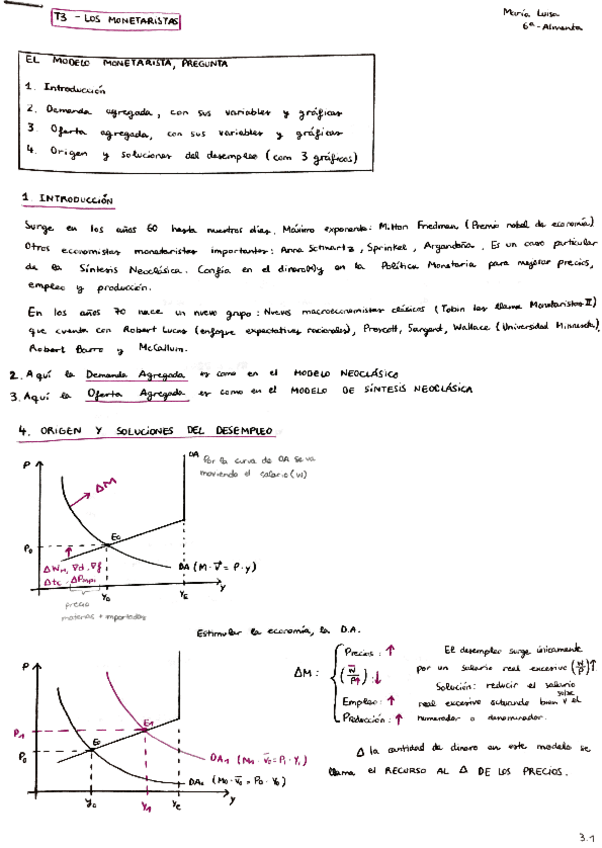 T3 - LOS MONETARISTAS
María Luisa
6ª-Almenta
EL MODELO MONETARISTA, PREGUNTA
1. Introducción
2. Demanda agregada, con sus variables y gráficas
3. Oferta agregada, con sus variables y gráficas
4. Origen y soluciones del desempleo (com 3 gráficos)
1 INTRODUCCIÓN
Surge en los años 60 hasta nuestros días. Máximo exponente: Milton Friedman (Premio nobel de economía)
Otros economistas monetaristas importantes: Anna Schwartz, Sprinkel, Argandoña. Es un caso particular
de la Síntesis Neoclásica. Confía en el dinero(M) y en la Política Monetaria para mejorar precios,
empleo y producción.
En los años 70 nace un nuevo grupo: Nuevos macroeconomistas clásicos (Tobin los llama Monetaristas II)
que cuenta con Robert Lucas (enfoque expectativas racionales), Prescott, Sargent, Wallace (Universidad Minnesota)
Robert Barro y McCallum.
2. Aquí la Demanda Agregada es como en el MODELO NEOCLÁSICO
3. Aquí la Oferta Agregada es como en el MODELO DE SÍNTESIS NEOCLÁSICA
4. ORIGEN Y SOLUCIONES DEL DESEMPLEO
P
OA
Por la curva de OA se va
moviendo el salario (w)
ΔM
E0
P0
ΔWm, ∇d, ∇f
Δtc, ΔPmpi
DA (M·V̄ = P·y)
y0
yE
y
precio
materias + importadas
Estimular la economía, la D.A.
P
P1
P0
E1
E0
DA1 (M1·V̄0 = P1·Y1)
DA0 (M0·V̄0 = P0·Y0)
y0
y1
yE
y
ΔM:
Precios: ↑
(W̄/P↑): ↓
Empleo: ↑
Producción: ↑
El desempleo surge únicamente
por un salario real excesivo (W/P)↑
Solución: reducir el salario
real excesivo actuando bien sobre el
numerador o denominador.
Δ la cantidad de dinero en este modelo se
llama el RECURSO AL Δ DE LOS PRECIOS.
3.1